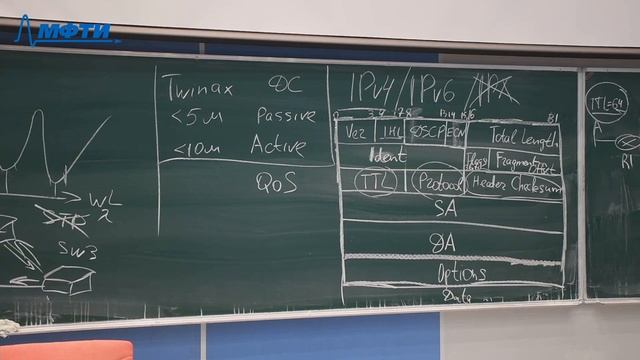 МФТИ
Twinax DC
<5м Passive
<10м Active
QoS
WL
2
STP
SW3
IPv4/IPv6/IPX
0 3 4 7 8 13 14 15 16 31
Ver IHL DSCP ECN Total Length
Ident Flags Fragment offset
TTL Protocol Header Checksum
SA
DA
Options
Data
TTL=64
A
R1